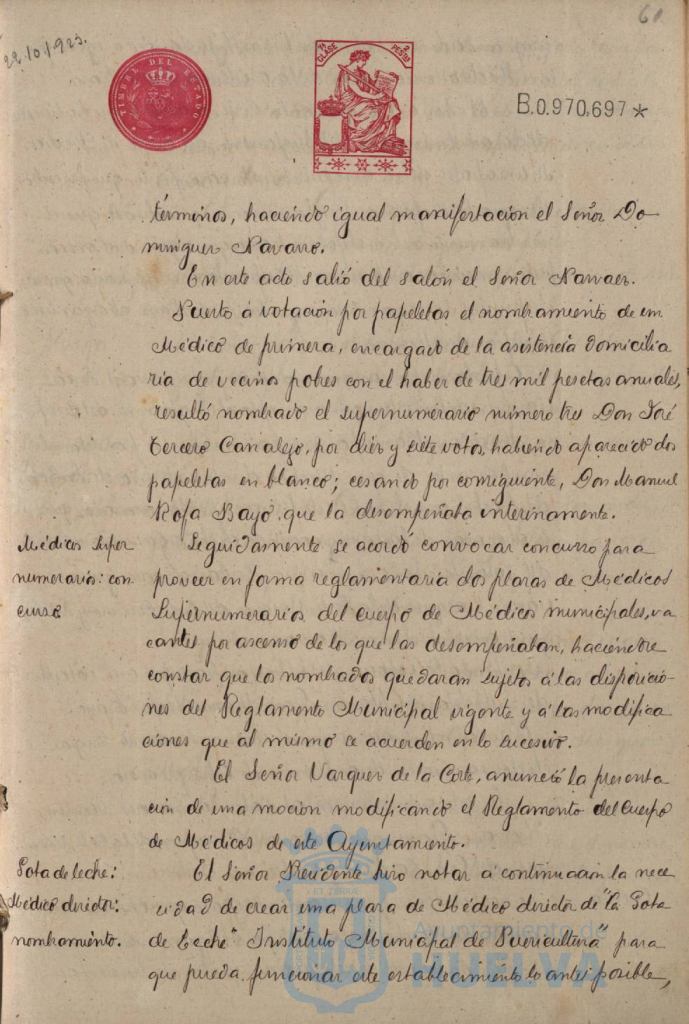 22.10/923.
60
TIMBRE DEL ESTADO
7ª CLASE 2 PESTAS
B.0.970,697*
términos, haciendo igual manifestación el Señor Do-
minguez Navarro.
En este acto salió del salón el Señor Narvaez.
Puesto á votación por papeletas el nombramiento de un
Médico de primera, encargado de la asistencia domicilia
ria de vecinos pobres con el haber de tres mil pesetas anuales,
resultó nombrado el supernumerario número tres Don José
Tercero Canalejo, por diez y siete votos, habiendo aparecido dos
papeletas en blanco; cesando por consiguiente, Don Manuel
Rofa Bayo, que la desempeñaba interinamente.
Médicos Super
numerarios: con
curso
Seguidamente se acordó convocar concurso para
proveer en forma reglamentaria dos plazas de Médicos
Supernumerarios del cuerpo de Médicos municipales, va
cantes por ascenso de los que las desempeñaban, haciéndose
constar que los nombrados quedaran sujetos á las disposicio-
nes del Reglamento Municipal vigente y á las modifica
ciones que al mismo se acuerden en lo sucesivo.
El Señor Vazquez de la Corte, anunció la presenta
ción de una moción modificando el Reglamento del cuerpo
de Médicos de este Ayuntamiento.
Gota de leche:
Médico director:
nombramiento.
El Señor Presidente hizo notar a continuación la nece
sidad de crear una plaza de Médico director de "La Gota
de Leche" Instituto Municipal de Puericultura" para
que pueda funcionar este establecimiento lo antes posible,
Ayuntamiento de
HUELVA